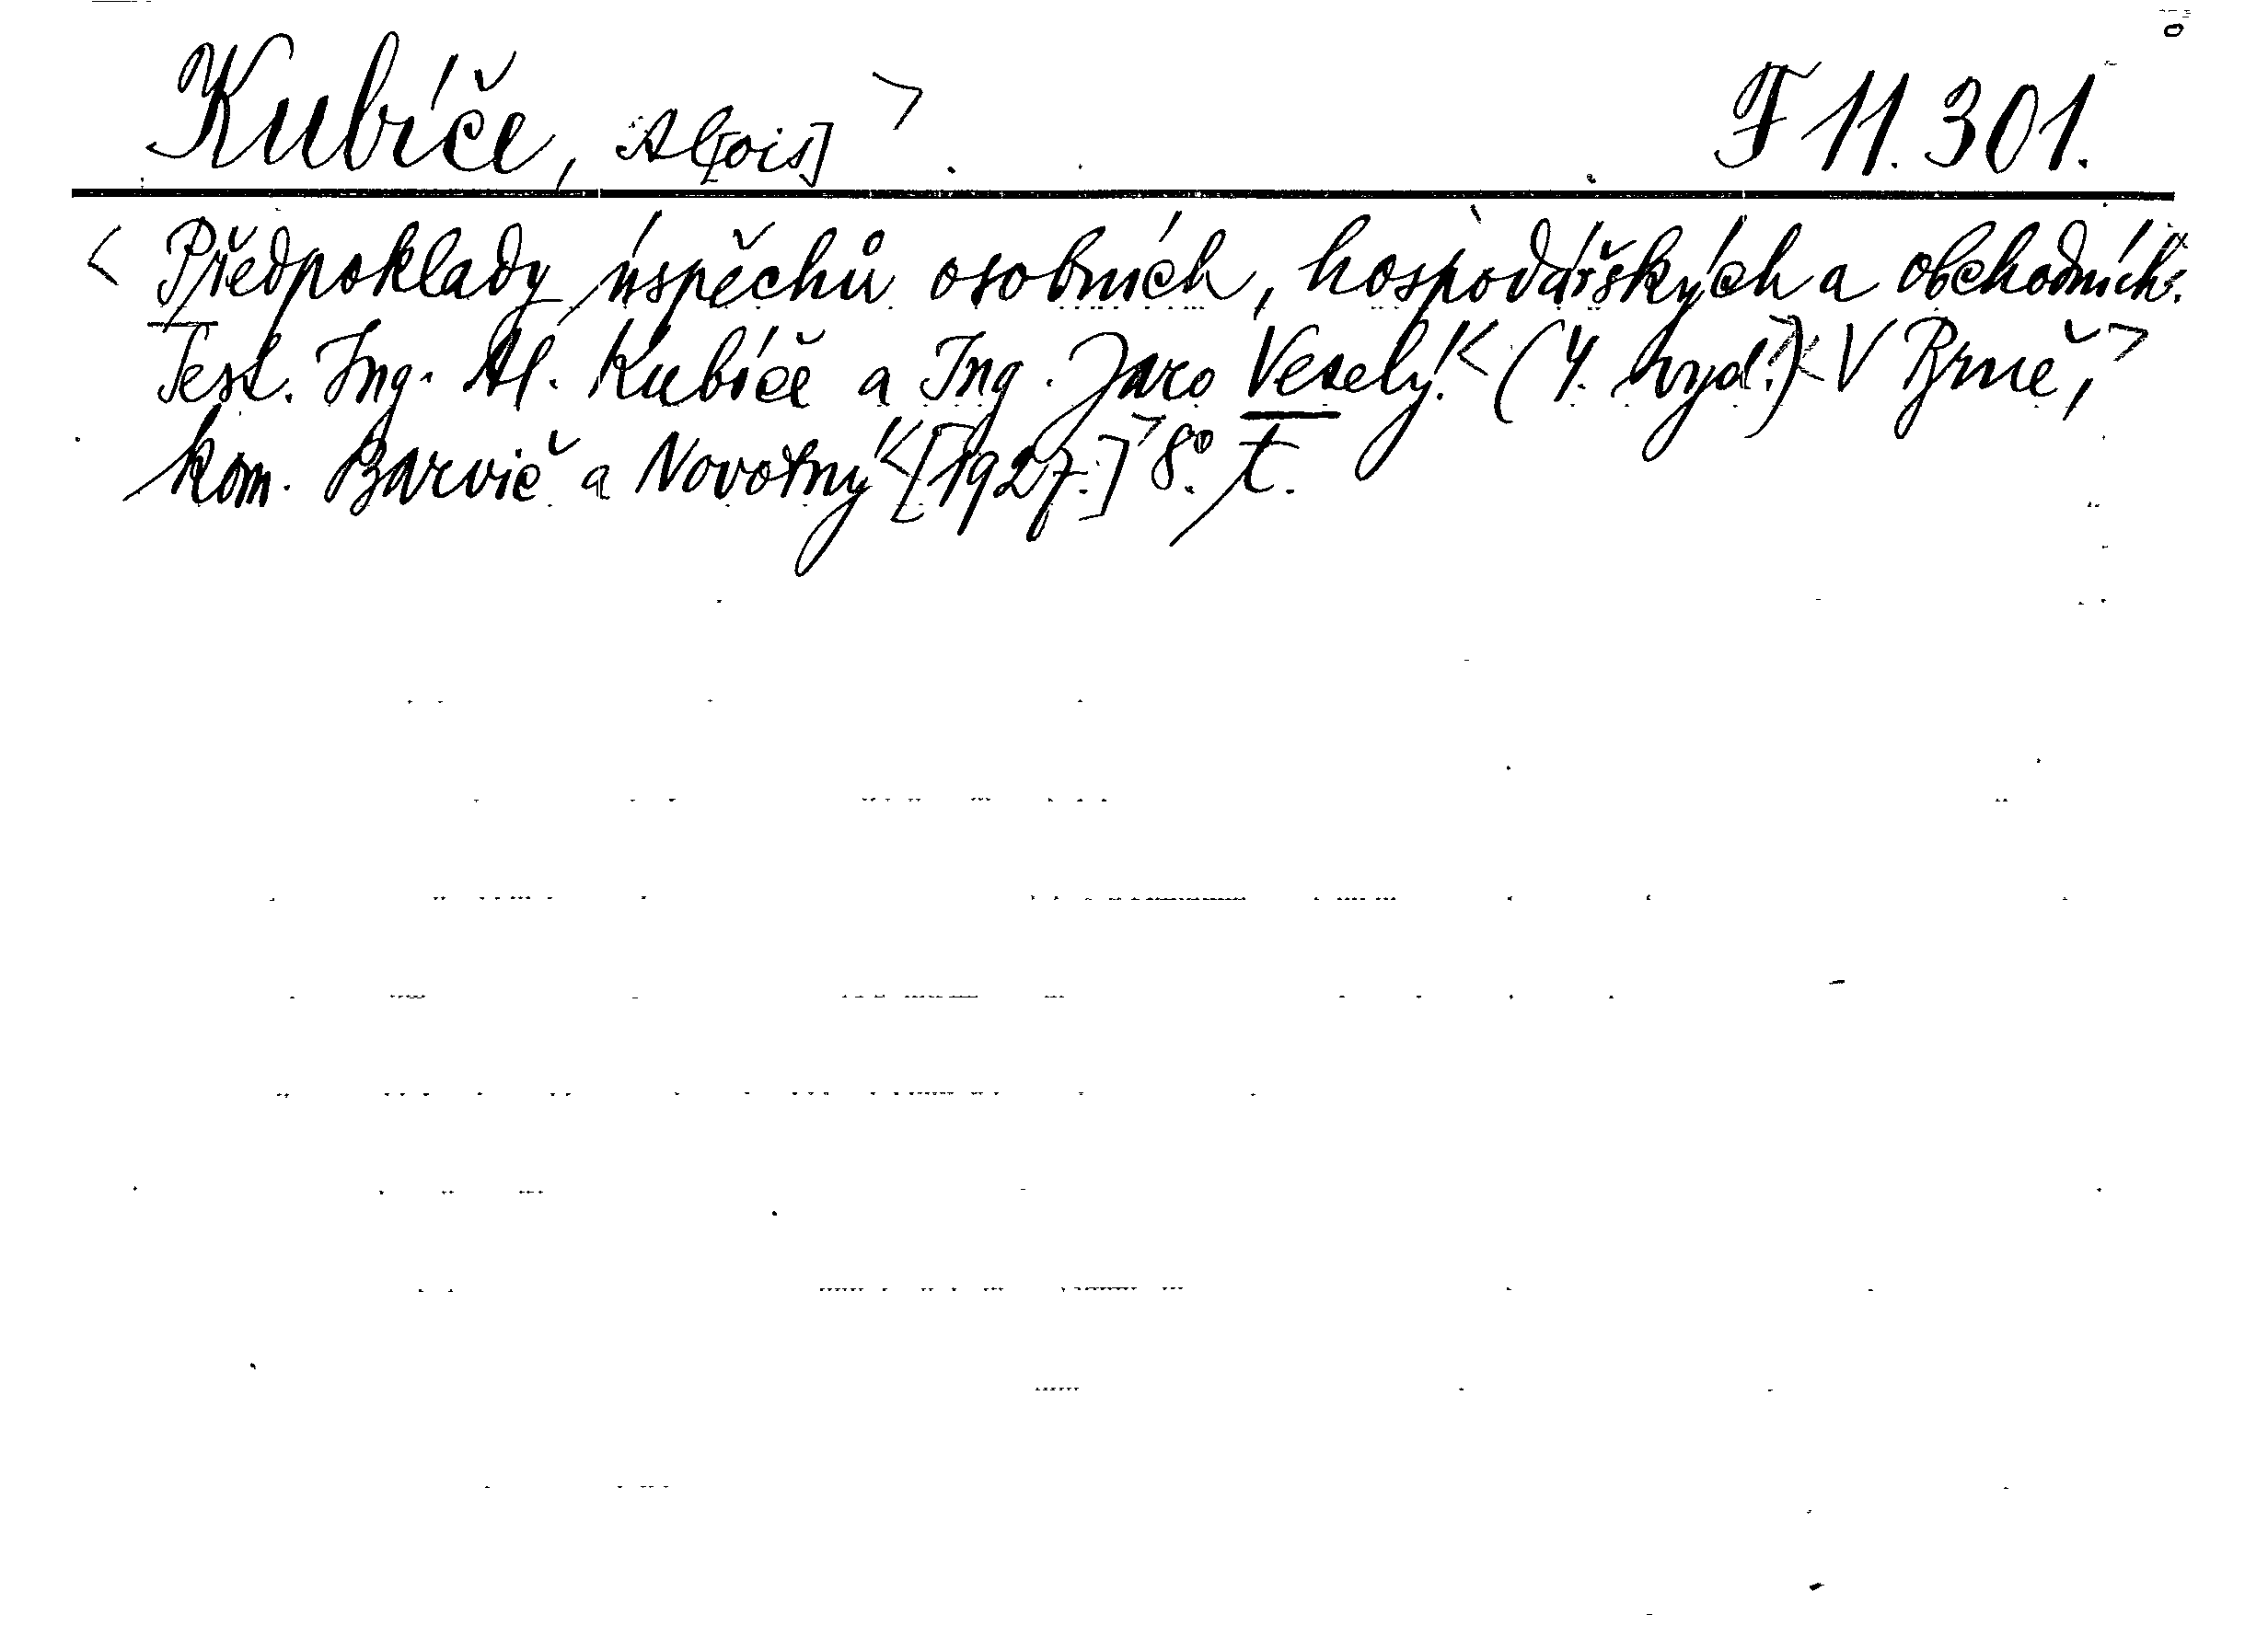 Kubíče, Al[ois] > F 11.301.
< Předpoklady úspěchů osobních, hospodářských a obchodních.
Sest. Ing. Al. Kubíče a Ing. Jaro Veselý. < (4. vyd.) > < V Brně, >
kom. Barvič a Novotný < [1927.] > 8°. t.